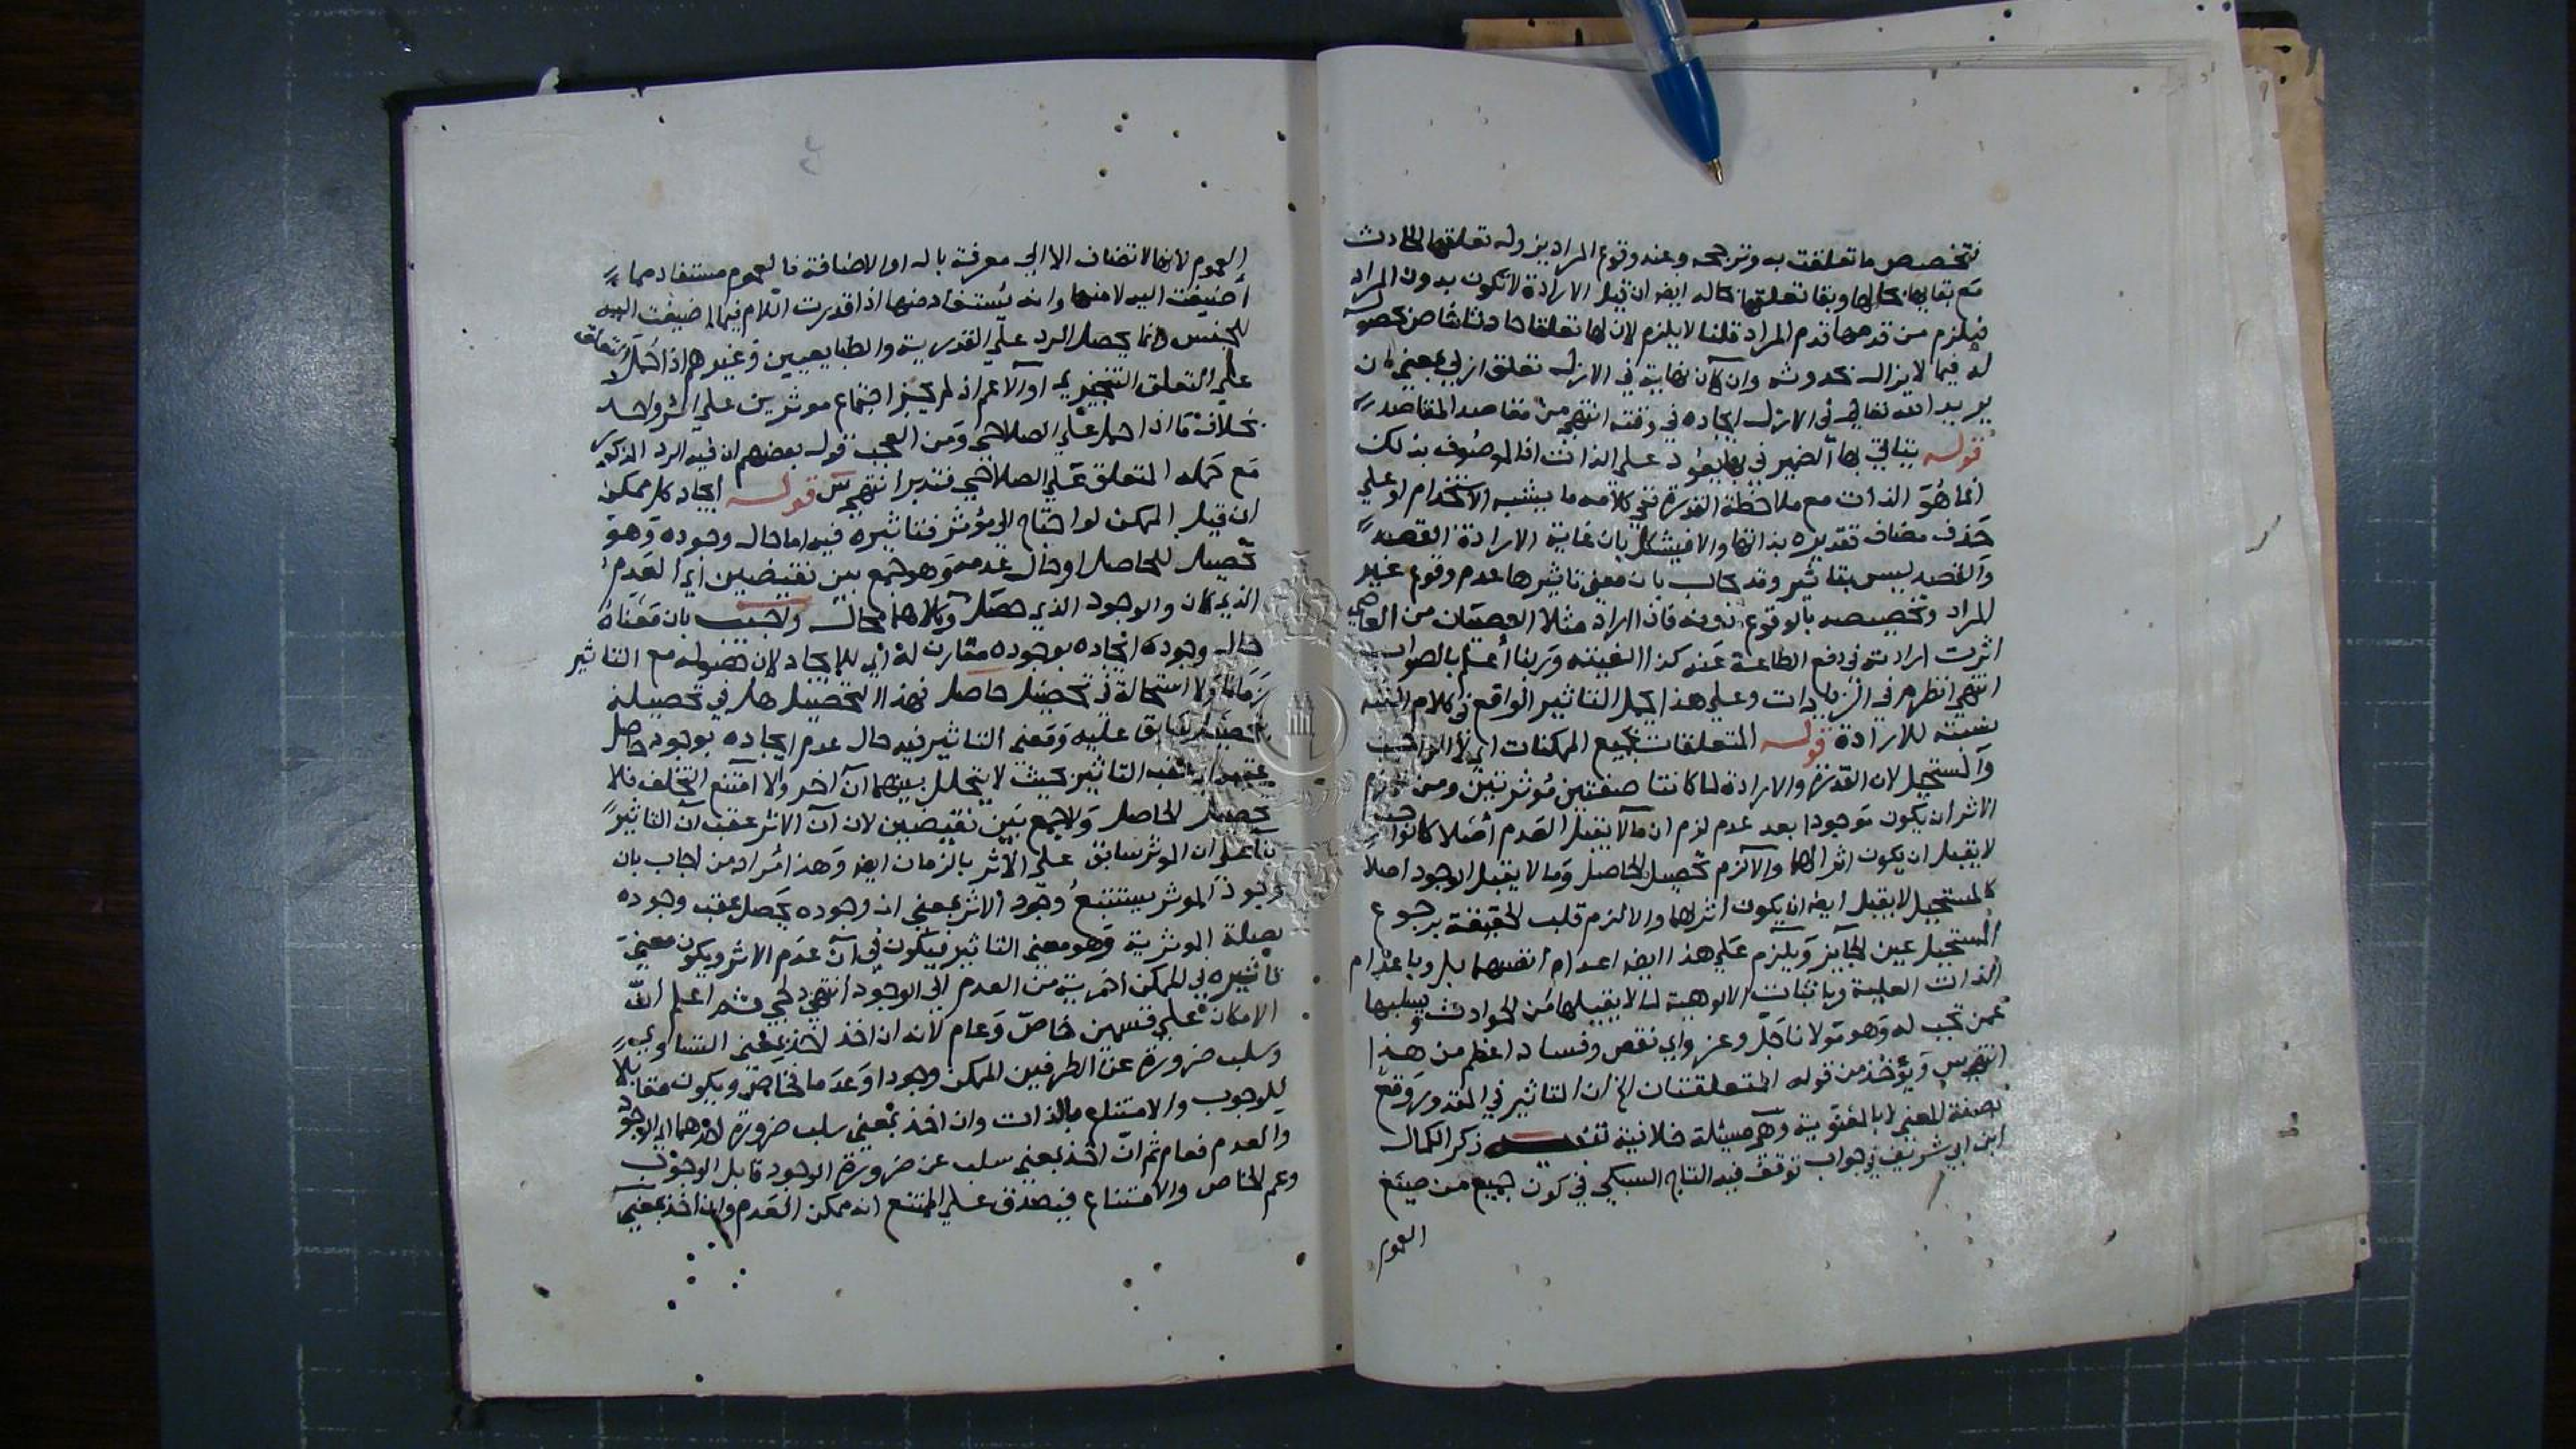 فتخصيص ما تعلقت به وترجحه وعند وقوع المراد يزول تعلقها الحادث
مع بقائها بحالها وبقا تعلقها بحاله ايضا ان قيل الارادة لا تكون بدون المراد
فيلزم من قدمها قدم المراد قلنا لا يلزم لان لها تعلقا حادثا
له فيما لا يزال بحدوثه وان كان في الازل تعلق ازلي بمعنى ان
يريد الله تعالى في الازل ايجاده في وقته انتهى من مقاصد المقاصد
قوله يتاتى بها الضمير في بها يعود على الذات اذ الموصوف بذلك
انما هو الذات مع ملاحظة القدرة ففي كلامه ما يشبه الاستخدام او على
حذف مضاف تقديره بذاتها والا فيشكل بان غاية الارادة القصد
والقصد ليس بتاثير وقد يجاب بان معنى تاثيرها عدم وقوع غير
المراد وتخصيصه بالوقوع دونه فاذا اراد مثلا العصيان من العاصي
اثرت ارادته في دفع الطاعة عنه كذا الغيته وربنا اعلم بالصواب
انتهى انظره في الزيادات وعلى هذا يحمل التاثير الواقع في كلام
نسبته للارادة قوله المتعلقات بجميع الممكنات اي لا الواجب
والمستحيل لان القدرة والارادة لما كانتا صفتين مؤثرتين ومن لازم
الاثر ان يكون موجودا بعد عدم لزم ان ما لا يقبل العدم اصلا كالواجب
لا يقبل ان يكون اثرا لهما والا لزم تحصيل الحاصل وما لا يقبل الوجود اصلا
كالمستحيل لا يقبل ايضا ان يكون اثرا لهما والا لزم قلب الحقيقة برجوع
المستحيل عين الجايز ويلزم على هذا ايضا اعدام انفسهما بل وباعدام
الذات العلية وباثبات الالوهية لما لا يقبلها من الحوادث وبسلبها
عمن تجب له وهو مولانا جل وعز واي نقص وفساد اعظم من هذا
انتهى س ويؤخذ من قوله المتعلقتان الخ ان التاثير في المقدور وقع
بصفة المعنى لا بالمعنوية وهي مسئلة خلافية ذكر الكمال
ابن ابي شريف في جواب توقف فيه التاج السبكي في كون جميع من صيغ
العموم
العموم لانها لا تضاف الا الى معرفة بال او الاضافة فالعموم مستفاد مما
اضيفت اليه لا منها وانه يستفاد منها اذا قدرت اللام فيما اضيفت اليه
للجنس وانما يحصل الرد على القدرية والطبايعيين وغيرهم اذا حمل التعلق
على التعلق التنجيزي او الاعم اذ لم يجز اجتماع موثرين على اثر واحد
بخلاف ما اذا حمل على الصلاحي ومن العجب قول بعضهم ان فيه الرد المذكور
مع حمله المتعلق على الصلاحي فتدبر انتهى س قوله ايجاد كل ممكن
ان قيل الممكن لو احتاج الى مؤثر فتاثيره فيه اما حال وجوده وهو
تحصيل للحاصل او حال عدمه وهو جمع بين نقيضين اي العدم
الذي كان والوجود الذي حصل وكلاهما محال واجيب بان معناه
حال وجوده ايجاده بوجوده مقارن له اي للايجاد لان حصوله مع التاثير
زمانا ولا استحالة في تحصيل حاصل بهذا التحصيل بل في تحصيله
بتحصيل سابق عليه ومعنى التاثير فيه حال عدم ايجاده بوجود حاصل
عقب التاثير بحيث لا يتخلل بينهما آن آخر والا امتنع التخلف فلا
تحصيل الحاصل ولا جمع بين نقيضين لان آن الاثر عقب آن التاثير
بنا على ان الموثر سابق على الاثر بالزمان ايضا وهذا مراد من اجاب بان
وجود الموثر يستتبع وجود الاثر بمعنى ان وجوده يحصل عقب وجوده
بصفة الموثرية وهو معنى التاثير فيكون في آن عدم الاثر ويكون معنى
تاثيره في الممكن اخرجه من العدم الى الوجود انتهى ثم اعلم ان
الامكان على قسمين خاص وعام لانه ان اخذ بمعنى التساوي
وسلب ضرورة عن الطرفين الممكن وجودا وعدما فخاص ويكون مقابلا
للوجوب والامتناع بالذات وان اخذ بمعنى سلب ضرورة احدهما اي الوجود
والعدم فعام ثم ان اخذ بمعنى سلب عن ضرورة الوجود قابل الوجوب
وعم الخاص والامتناع فيصدق على الممتنع انه ممكن العدم وان اخذ بمعنى